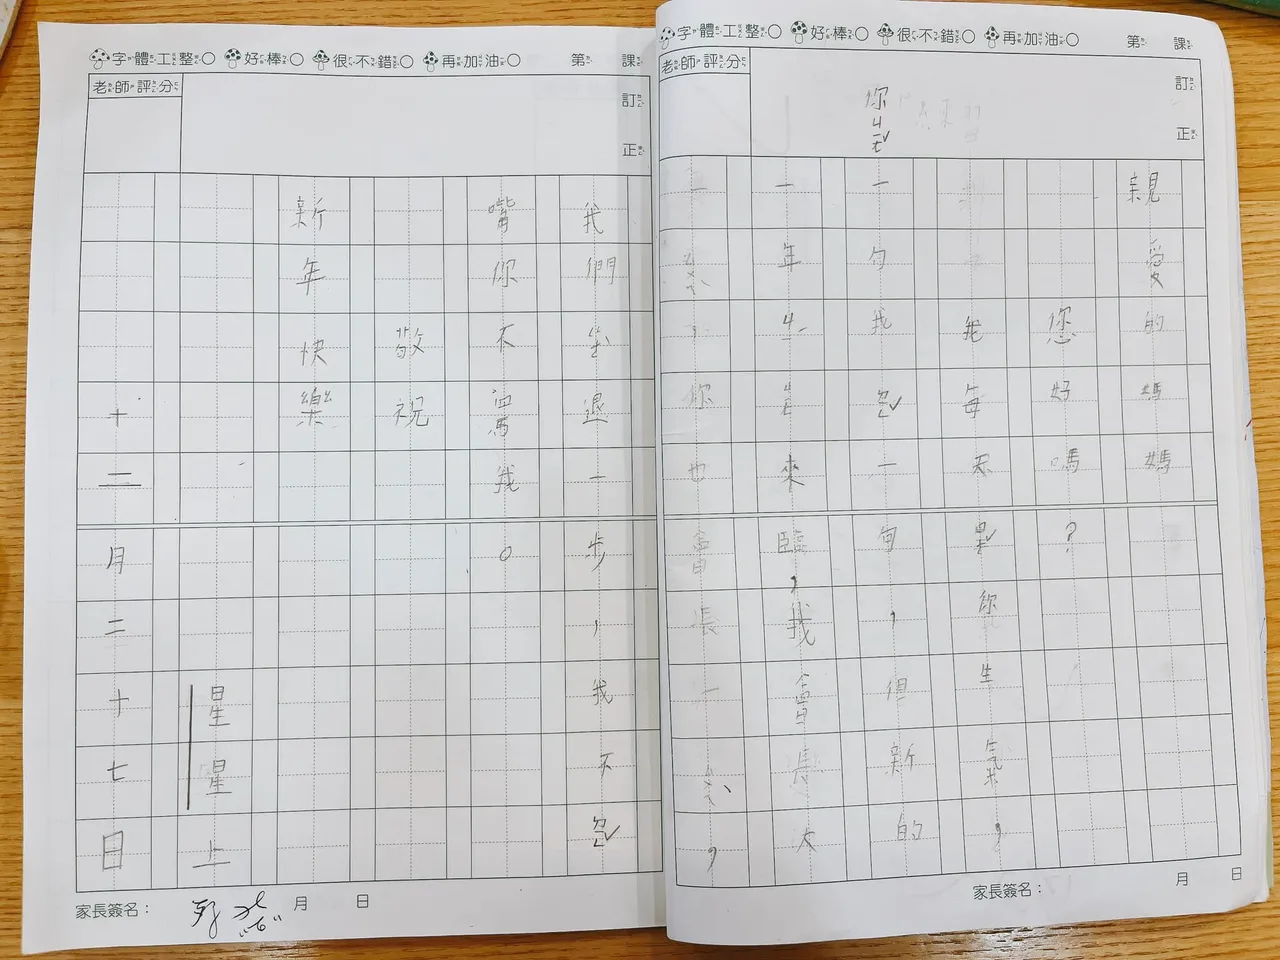 字體工整○ 好棒○ 很不錯○ 再加油○ 第 課
老師評分
訂正
你
親愛的媽媽
您好嗎?
我每天 你生氣,
一句我 一句,但新的
一年 來臨,我會長大
一 你也會長一 ,
字體工整○ 好棒○ 很不錯○ 再加油○ 第 課
老師評分
訂正
我們 退一步,我不
嘴你不罵我。
敬祝
新年快樂
星星上
十二月二十七日
家長簽名: 月 日
家長簽名: 月 日